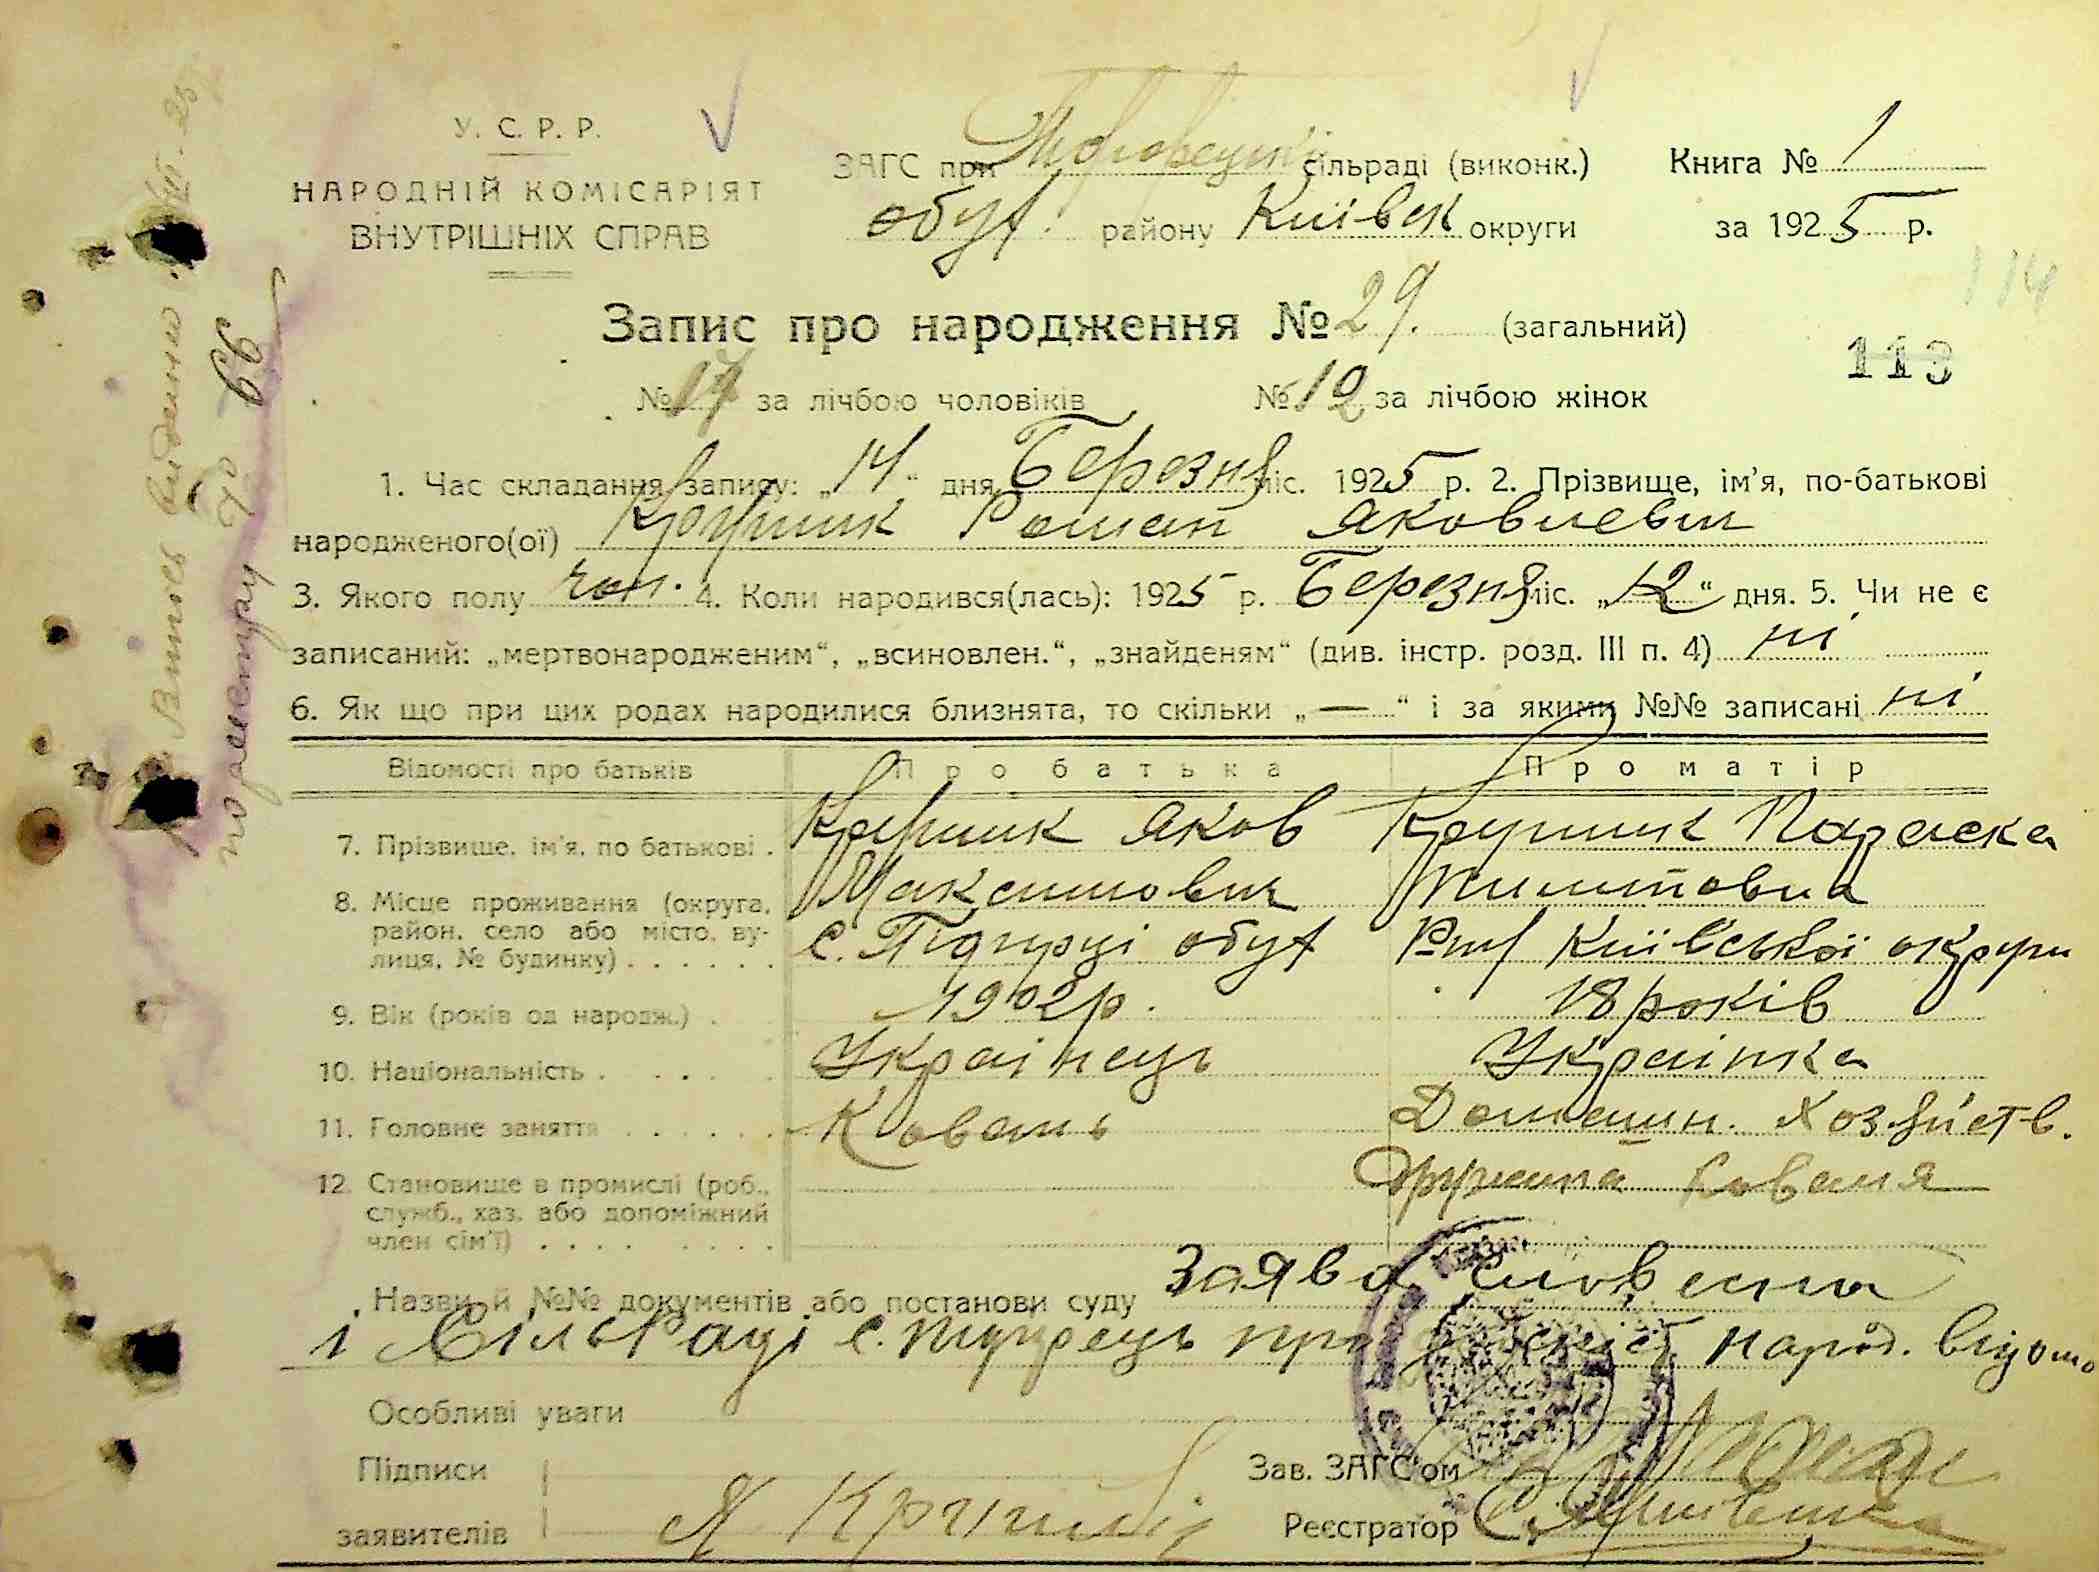 У. С. Р. Р.
НАРОДНІЙ КОМІСАРІЯТ
ВНУТРІШНІХ СПРАВ
ЗАГС при сільраді (виконк.) Книга № 1
обух. району Київськ округи за 1925 р.
114
Запис про народження № 29. (загальний)
113
№ 17 за лічбою чоловіків № 12 за лічбою жінок
1. Час складання запису: „14“ дня Березня міс. 1925 р. 2. Прізвище, ім'я, по-батькові
народженого(ої) Роман Яковлевич
3. Якого полу чол. 4. Коли народився(лась): 1925 р. Березня міс. „12“ дня. 5. Чи не є
записаний: „мертвонародженим“, „всиновлен.“, „знайденям“ (див. інстр. розд. III п. 4) ні
6. Як що при цих родах народилися близнята, то скільки „—“ і за якими №№ записані ні
Відомості про батьків Про батька Про матір
7. Прізвище, ім'я, по батькові . Яков Параска
Максимович
8. Місце проживання (округа, район, село або місто, ву-
лиця, № будинку) . . . . . . с. Підгірці обух Київської округи
9. Вік (років од народж.) . 1902р. 18 років
10. Національність . . . . Українець Українка
11. Головне заняття . . . . . Коваль Домашн. Хозяйств.
12. Становище в промислі (роб., Дружина Коваля
служб., хаз. або допоміжний
член сім'ї) . . . . . . . .
Назви й №№ документів або постанови суду Заява словесна
і СільРаді с. народ. відомо
Особливі уваги
Підписи Зав. ЗАГС'ом
заявителів Я Реєстратор
Випись видано
по реєстру за 69